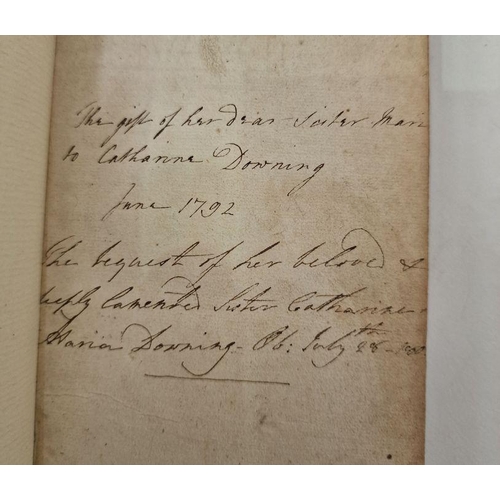 The gift of her dear Sister Mari
to Catharine Downing
June 1792
The bequest of her beloved &
deeply lamented Sister Catharine
Maria Downing - Ob: July 28th